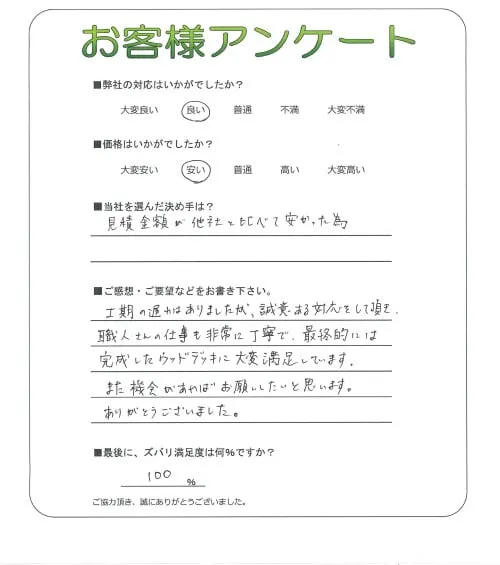 お客様アンケート
■弊社の対応はいかがでしたか？
大変良い 良い 普通 不満 大変不満
■価格はいかがでしたか？
大変安い 安い 普通 高い 大変高い
■当社を選んだ決め手は？
見積金額が他社と比べて安かった為
■ご感想・ご要望などをお書き下さい。
工期の遅れはありましたが、誠意ある対応をして頂き、
職人さんの仕事も非常に丁寧で、最終的には
完成したウッドデッキに大変満足しています。
また機会があればお願いしたいと思います。
ありがとうございました。
■最後に、ズバリ満足度は何％ですか？
100 %
ご協力頂き、誠にありがとうございました。